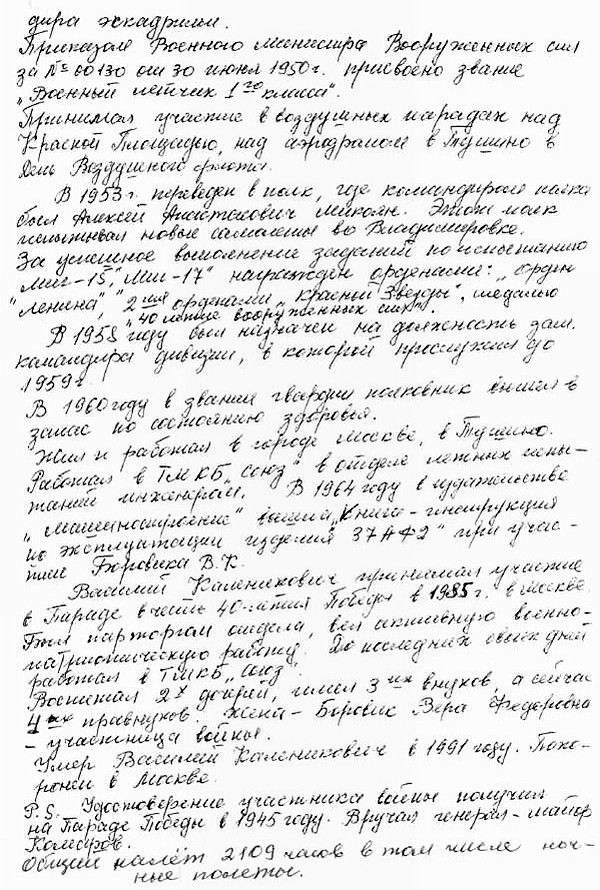 дира эскадрильи.
Приказом Военного Министра Вооруженных сил
за № 00130 от 30 июня 1950г. присвоено звание
„Военный летчик 1го класса".
Принимал участие в воздушных парадах над
Красной Площадью, над аэродромом в Тушино в
День Воздушного флота.
В 1953г. переведен в полк, где командиром полка
был Алексей Анастасович Микоян. Этот полк
испытывал новые самолеты во Владимировке.
За успешное выполнение заданий по испытанию
„Миг-15", „Миг-17" награжден орденами: „Орден
„Ленина", "2мя орденами „Красной Звезды", медалью
„40 летие вооруженных сил".
В 1958 году был назначен на должность зам.
командира дивизии, в которой прослужил до
1959г.
В 1960 году в звании гвардии полковник вышел в
запас по состоянию здоровья.
Жил и работал в городе Москве, в Тушино.
Работал в ТМКБ „Союз" в отделе летных испы-
таний инженером. В 1964 году в издательстве
„Машиностроение" вышла „Книга-инструкция
по эксплуатации изделия 37Ф2" при учас-
тии Боровика В.К.
Василий Каленикович принимал участие
в Параде в честь 40-летия Победы в 1985г. в Москве.
Был парторгом отдела, вел активную военно-
патриотическую работу. До последних своих дней
работал в ТМКБ „Союз".
Воспитал 2х дочерей, имел 3их внуков, а сейчас
4ых правнуков. Жена - Боровик Вера Федоровна
- участница войны.
Умер Василий Каленикович в 1991 году. Похо-
ронен в Москве.
P.S. Удостоверение участника войны получил
на Параде Победы в 1945 году. Вручал генерал-майор
Комаров.
Общий налёт 2109 часов в том числе ноч-
ные полеты.